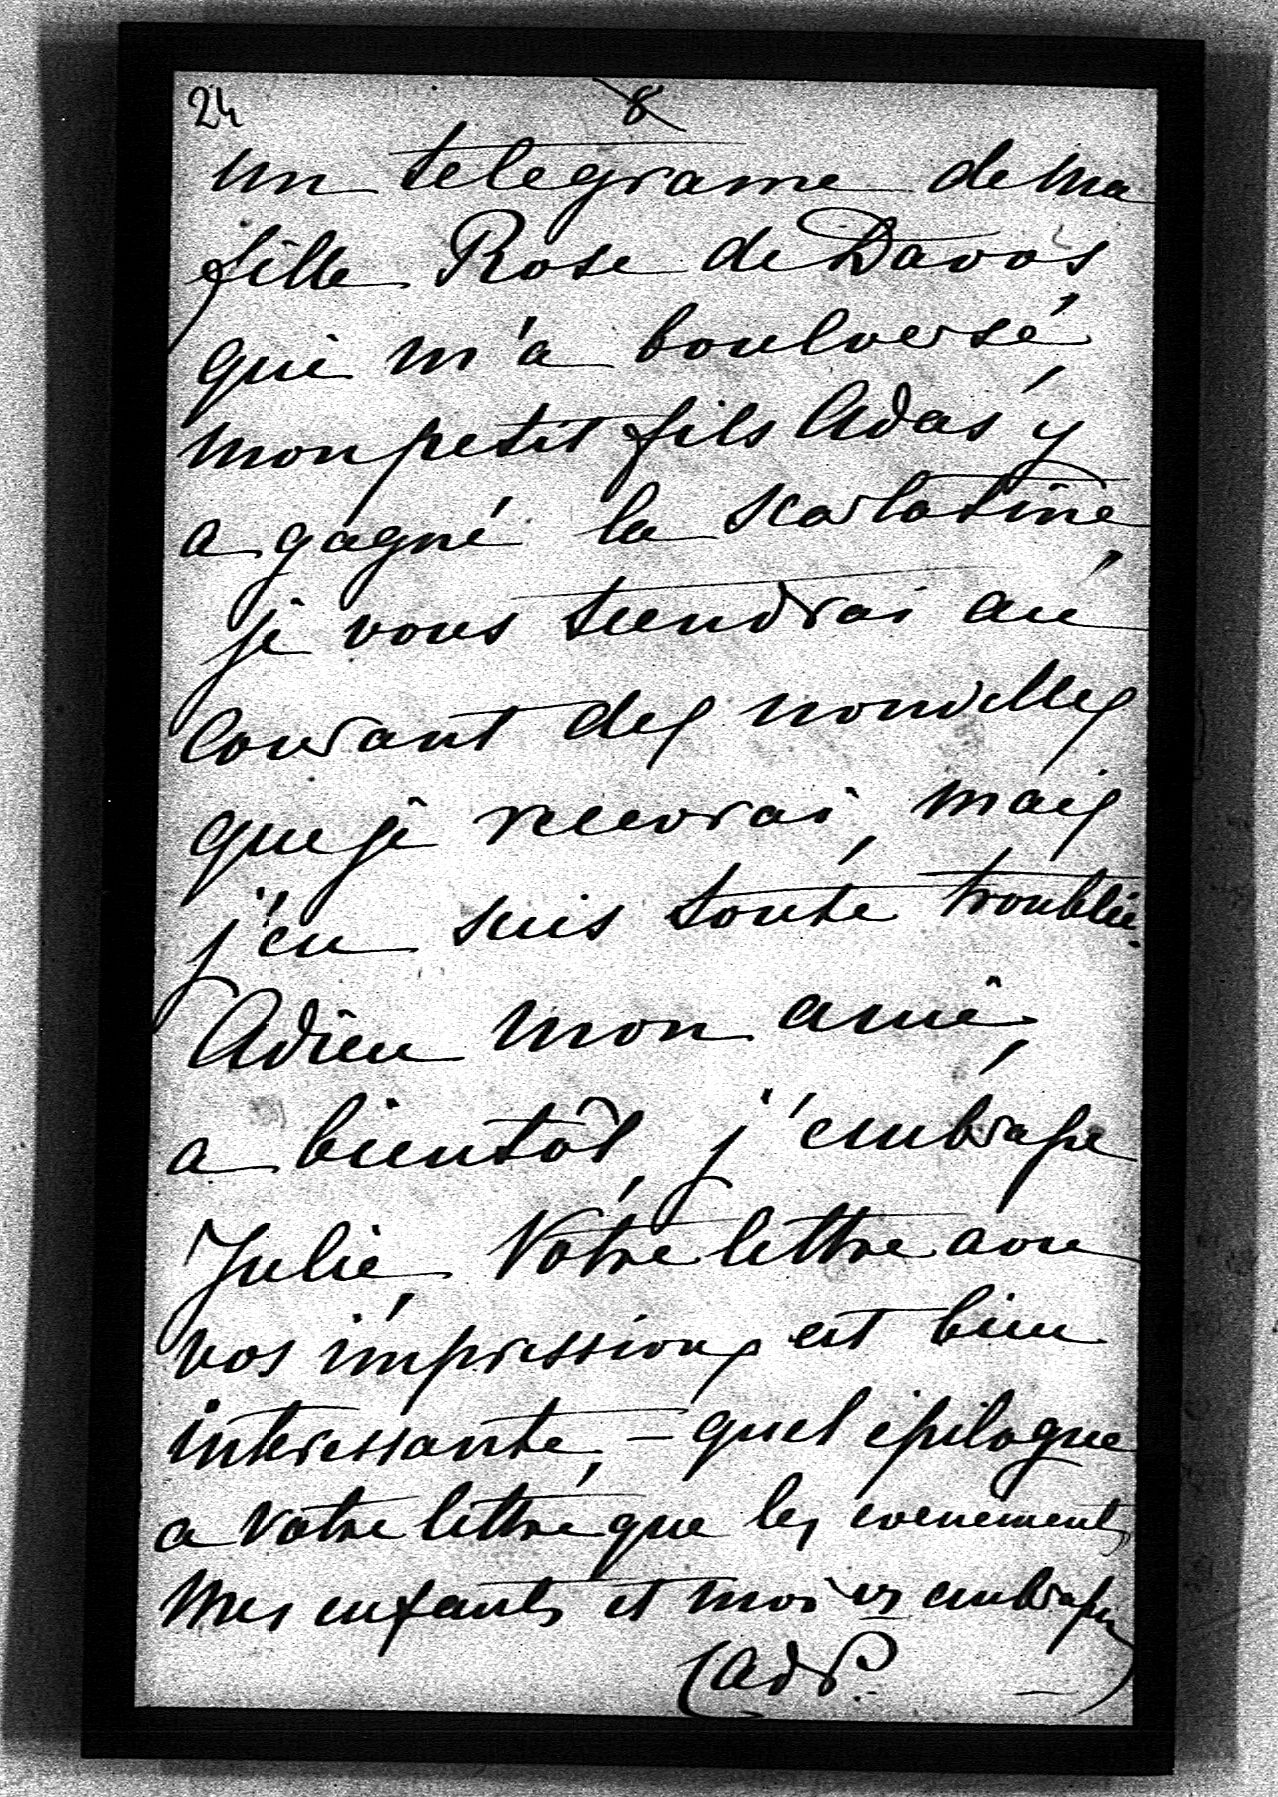 24 8
un telegrame de ma
fille Rose de Davos
qui m'a boulversé,
mon petit fils Adas y
a gagné la scarlatine,
je vous tiendrai au
courant des nouvelles
que je recevrai, mais
j'en suis toute troublée.
Adieu mon ami,
a bientôt, j'embrasse
Julie, Votre lettre avec
vos impressions est bien
interessante, – quel épilogue
a votre lettre que les evenements
Mes enfants et moi vs embrassons
AdP.